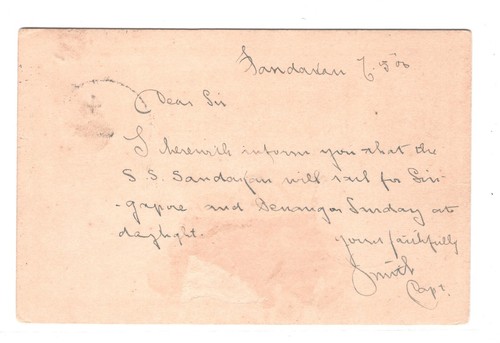 Sandakan
Dear Sir
I herewith inform you that the
S.S. Sandakan will sail for Sin-
-gapore and Penang on Sunday at
daylight.
yours faithfully
Smith
Capt.